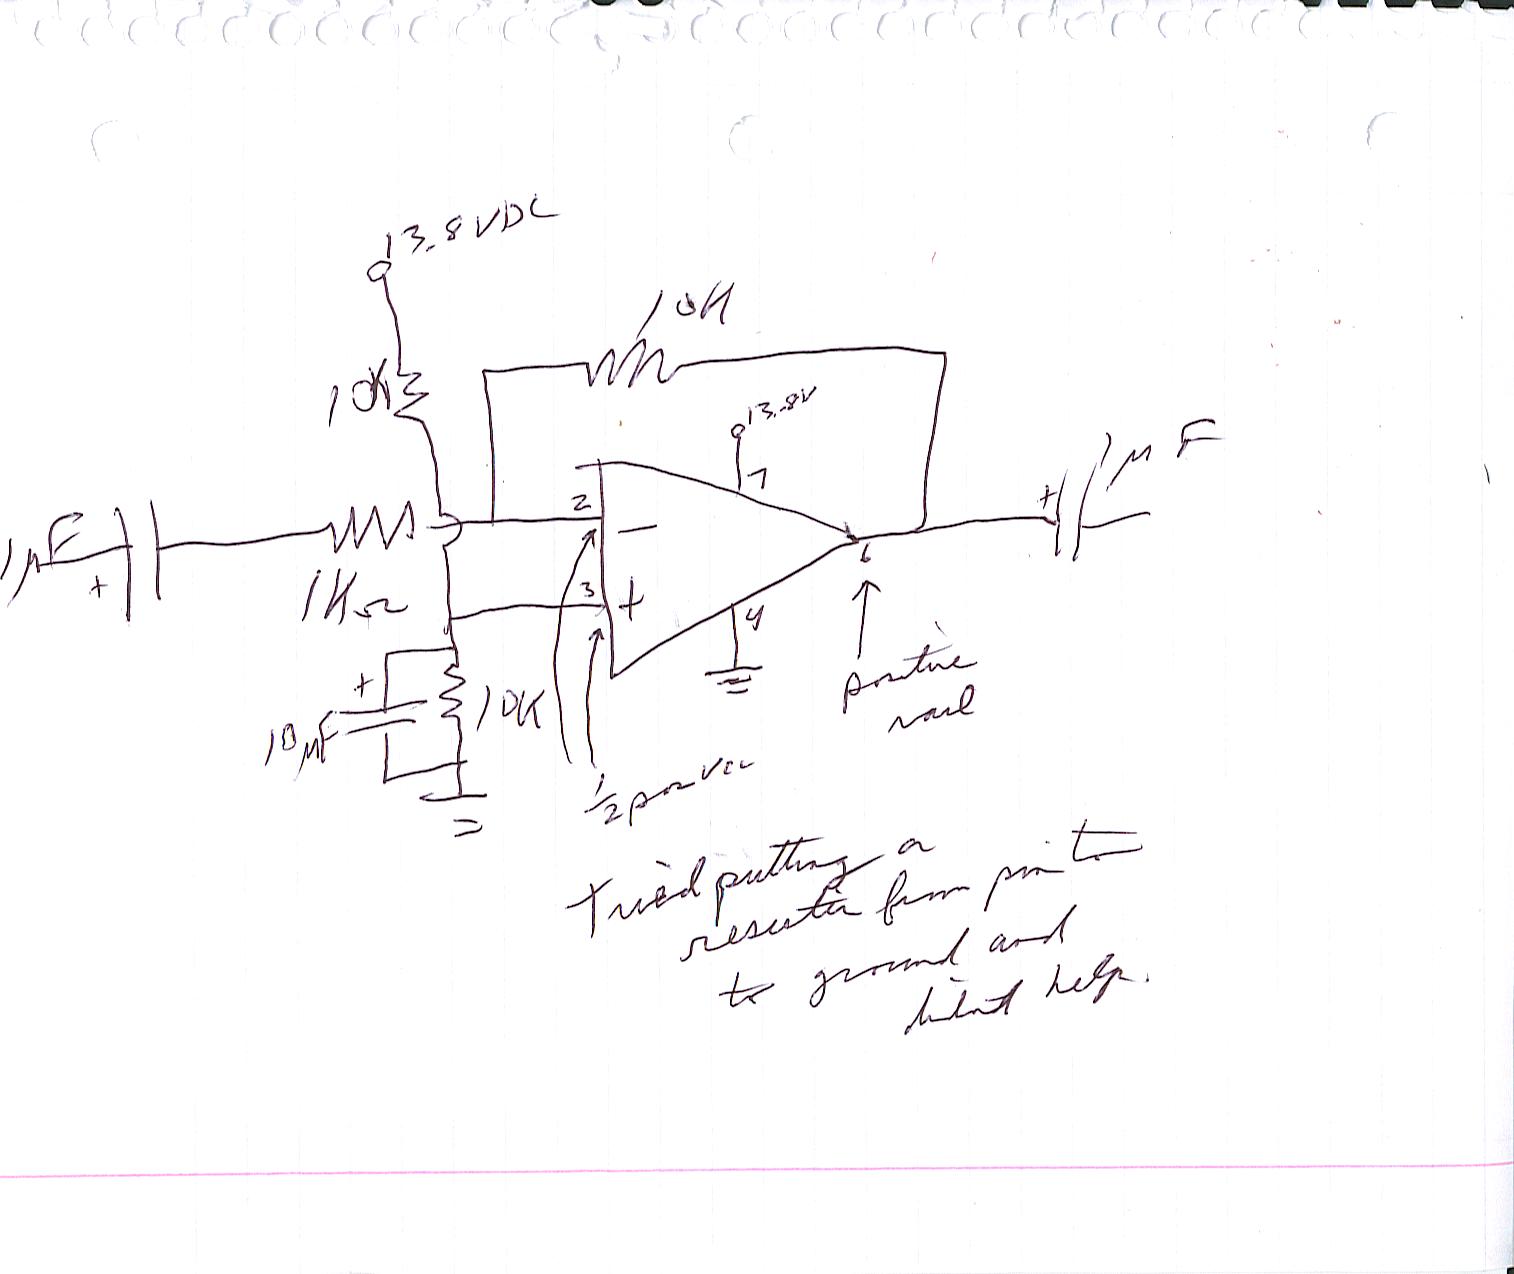 13.8 VDC
10K
10K
13.8V
7
1µF
+
1µF
+
1KΩ
2
−
3
+
6
4
+
10µF
10K
positive
rail
1/2 pos Vcc
Tried putting a
resistor from pin
to ground and
didnt help.